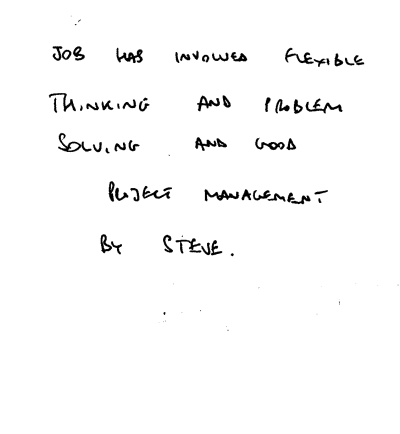 JOB HAS INVOLVED FLEXIBLE
THINKING AND PROBLEM
SOLVING AND GOOD
PROJECT MANAGEMENT
BY STEVE.